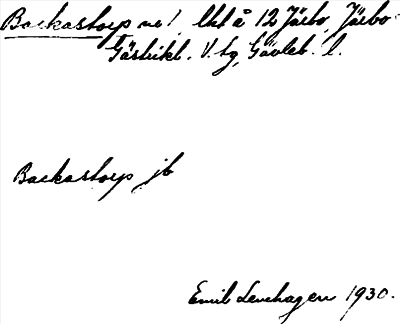 Backastorp nr 1. Uht å 12 Järbo, Järbo
Gästrikl. V. tg, Gävleb. l.
Backastorp jb
Emil Levhagen 1930.